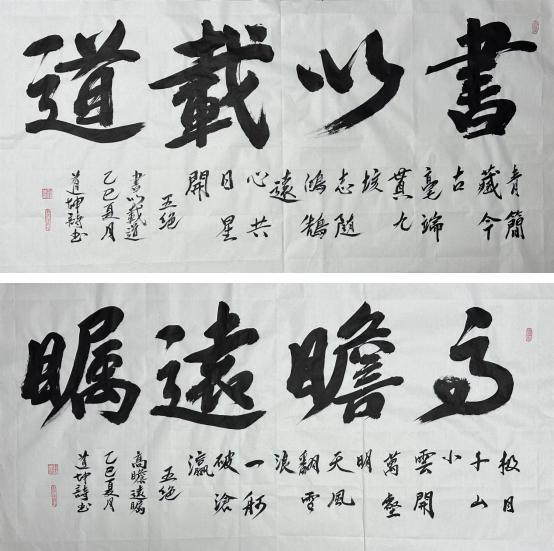 書以載道
青簡
藏今
古
毫端
貫九
垓
志隨
鴻鵠
遠
心共
日星
開
五絕
書以載道
乙巳夏月
道坤詩书
高瞻遠瞩
极目
千山
小
雲開
萬壑
明
天風
翻雪
浪
一舸
破滄
瀛
五絕
高瞻遠瞩
乙巳夏月
道坤詩书